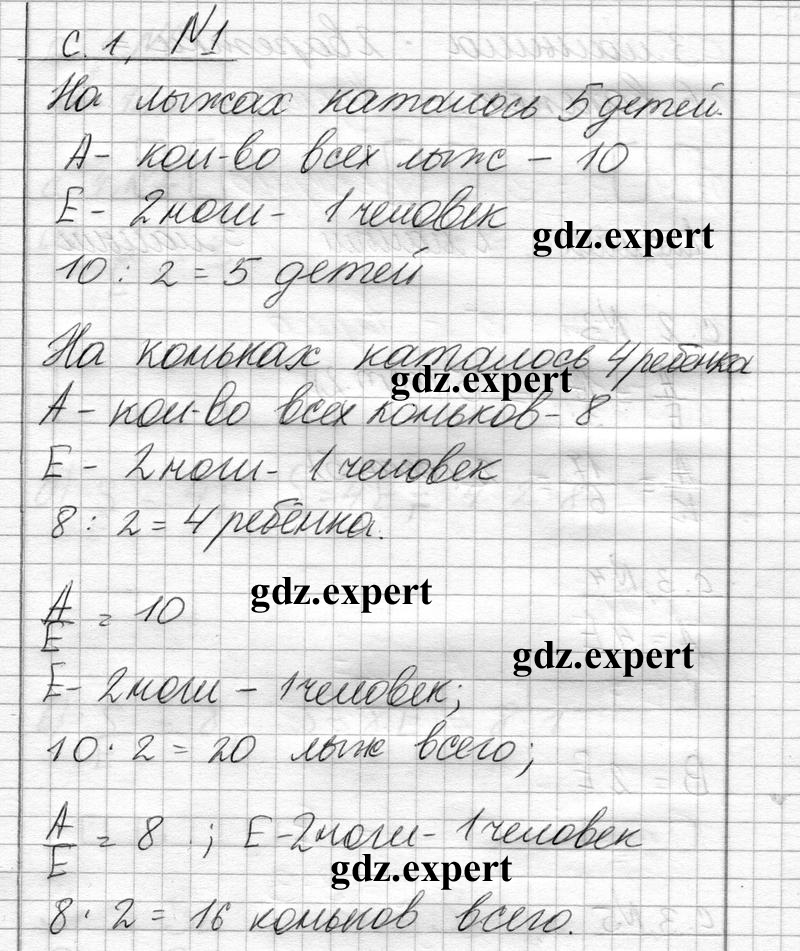 с. 1, №1
На лыжах каталось 5 детей.
А - кол-во всех лыж - 10
Е - 2 ноги - 1 человек
gdz.expert
10 : 2 = 5 детей
На коньках каталось 4 ребёнка
gdz.expert
А - кол-во всех коньков - 8
Е - 2 ноги - 1 человек
8 : 2 = 4 ребёнка.
gdz.expert
А/Е = 10
gdz.expert
Е - 2 ноги - 1 человек;
10 · 2 = 20 лыж всего;
А/Е = 8 ; Е - 2 ноги - 1 человек
gdz.expert
8 · 2 = 16 коньков всего.